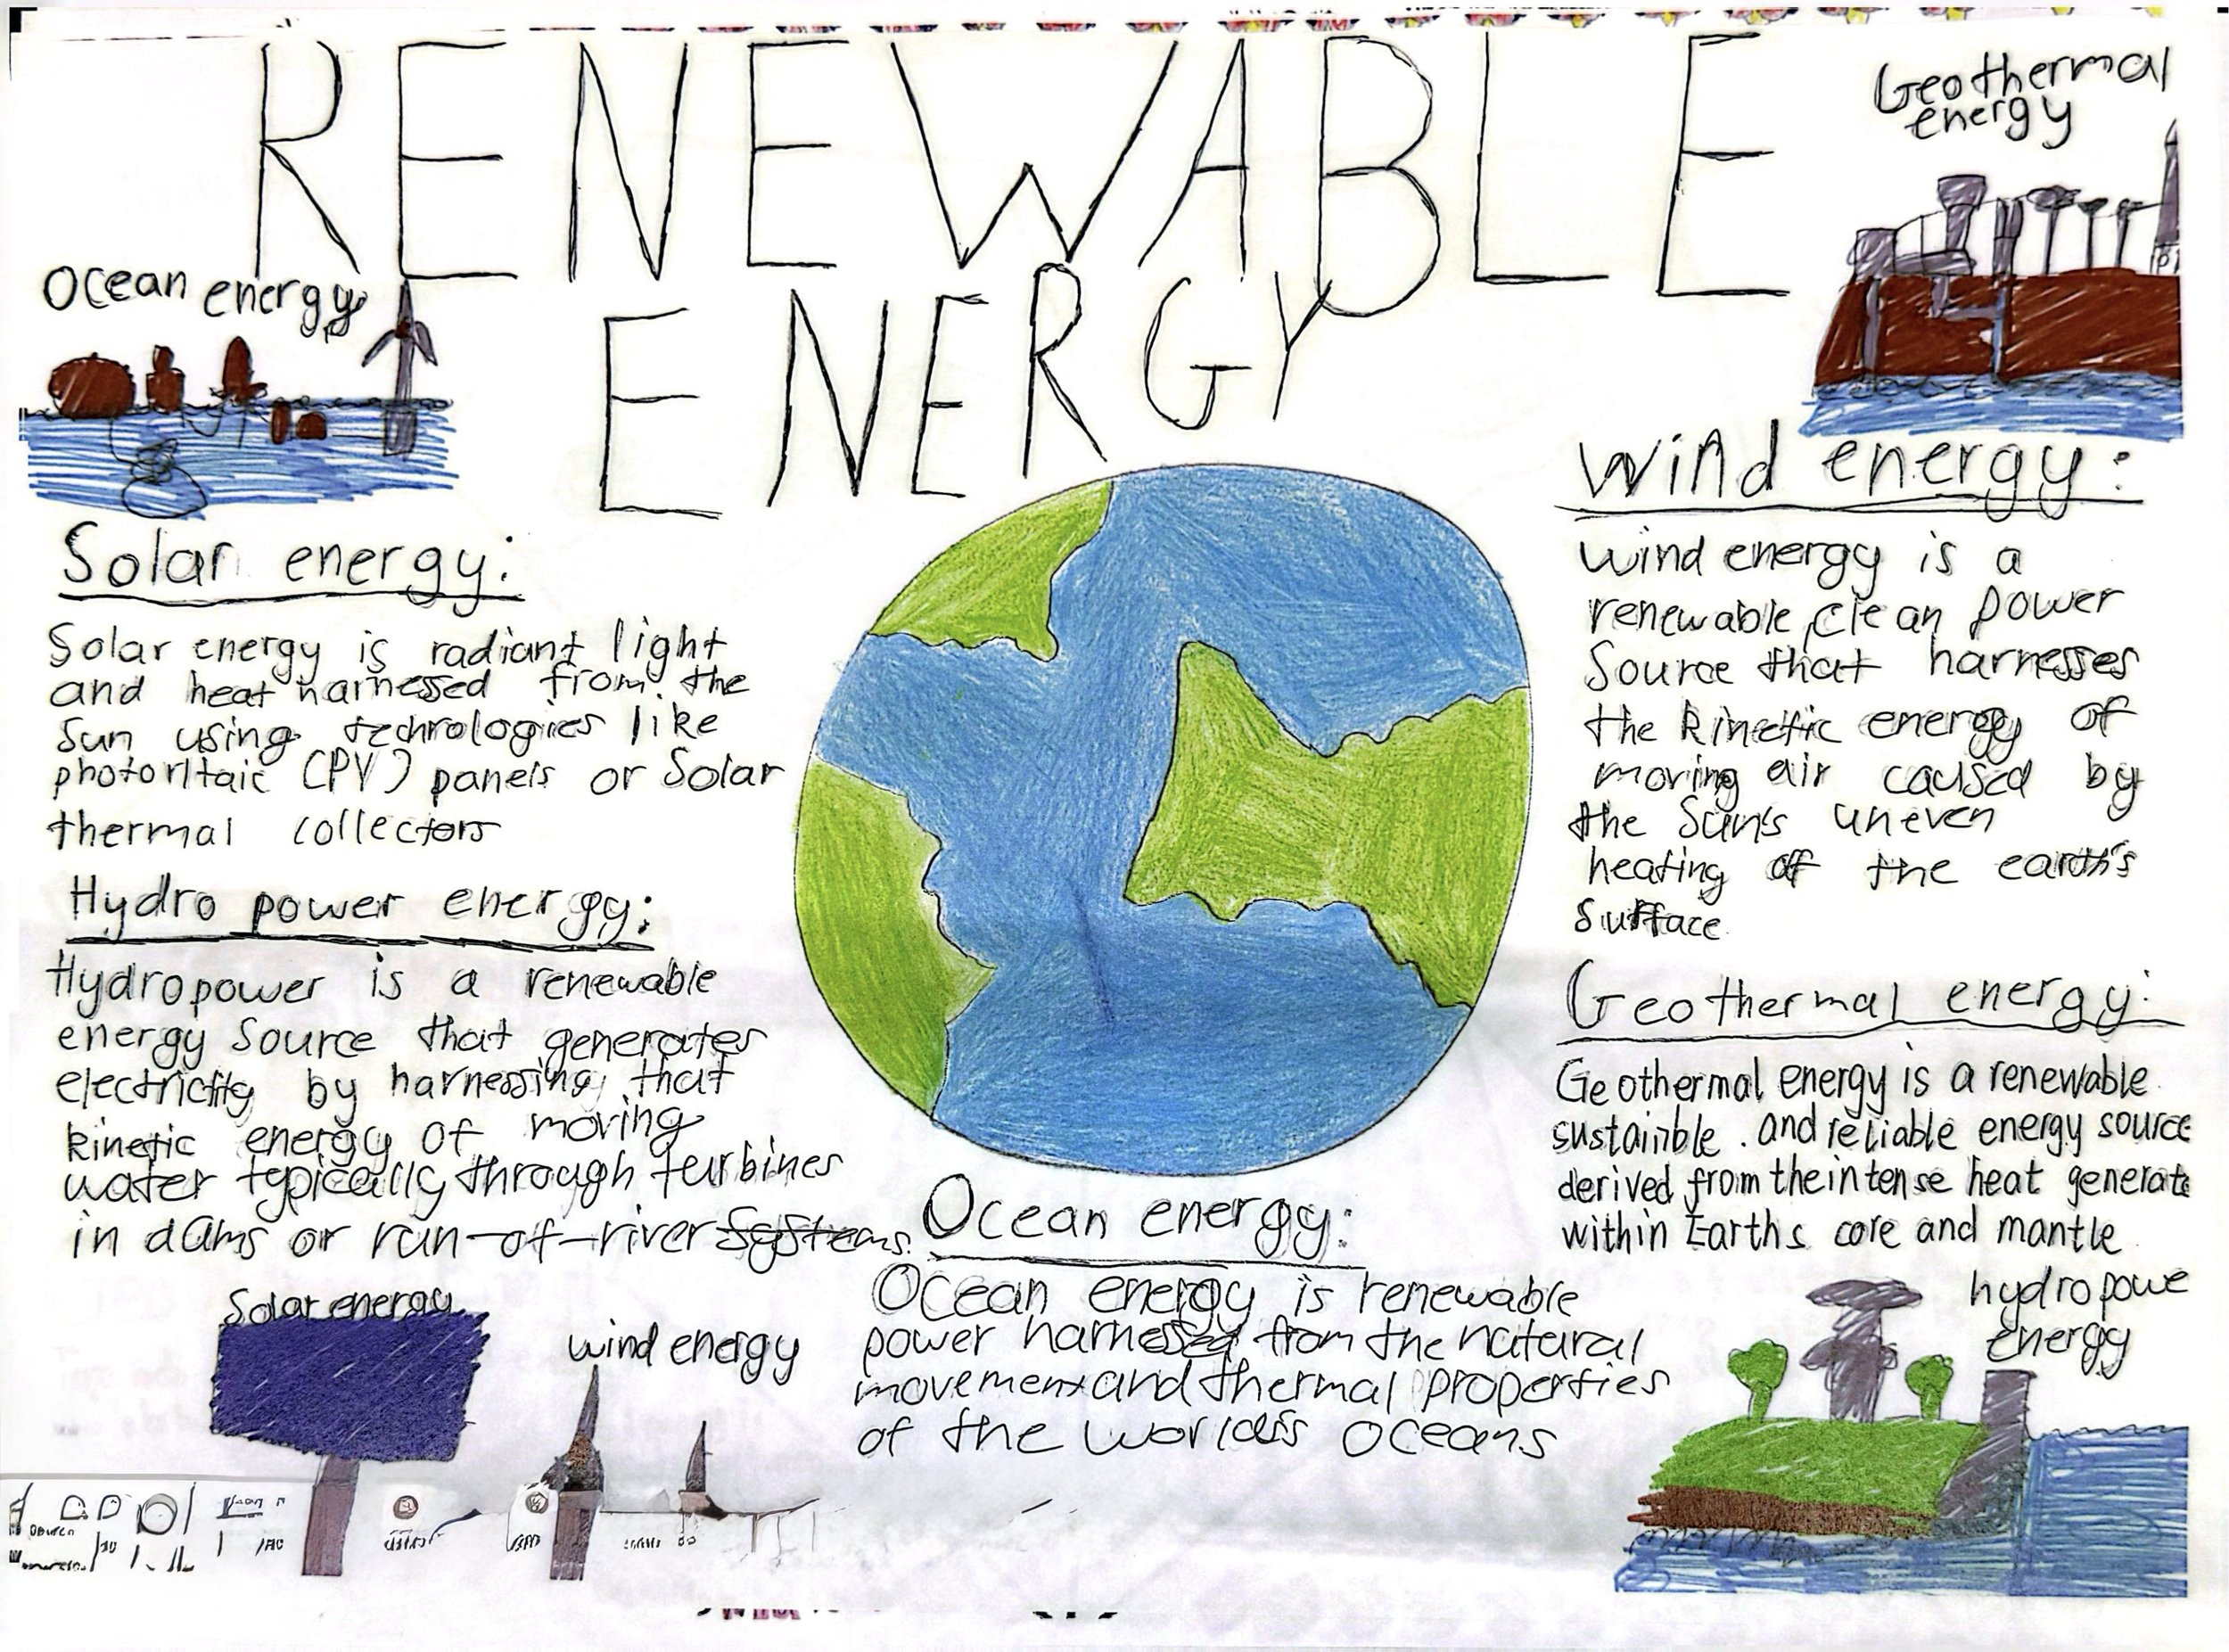 RENEWABLE
ENERGY
Geothermal
energy
Ocean energy
Solar energy:
Solar energy is radiant light
and heat harnessed from the
Sun using technologies like
photorltaic (PV) panels or Solar
thermal collectors
Hydro power energy:
Hydropower is a renewable
energy source that generates
electricity by harnessing that
kinetic energy of moving
water typically through turbines
in dams or run-of-river Systems.
Wind energy:
wind energy is a
renewable, clean power
Source that harnesses
the kinetic energy of
moving air caused by
the Sun's uneven
heating of the earth's
surface
Geothermal energy:
Geothermal energy is a renewable
sustainble . and reliable energy source
derived from the intense heat generate
within Earths core and mantle
Ocean energy:
Ocean energy is renewable
power harnessed from the natural
movement and thermal properties
of the world's oceans
Solar energy
wind energy
hydropowe
energy